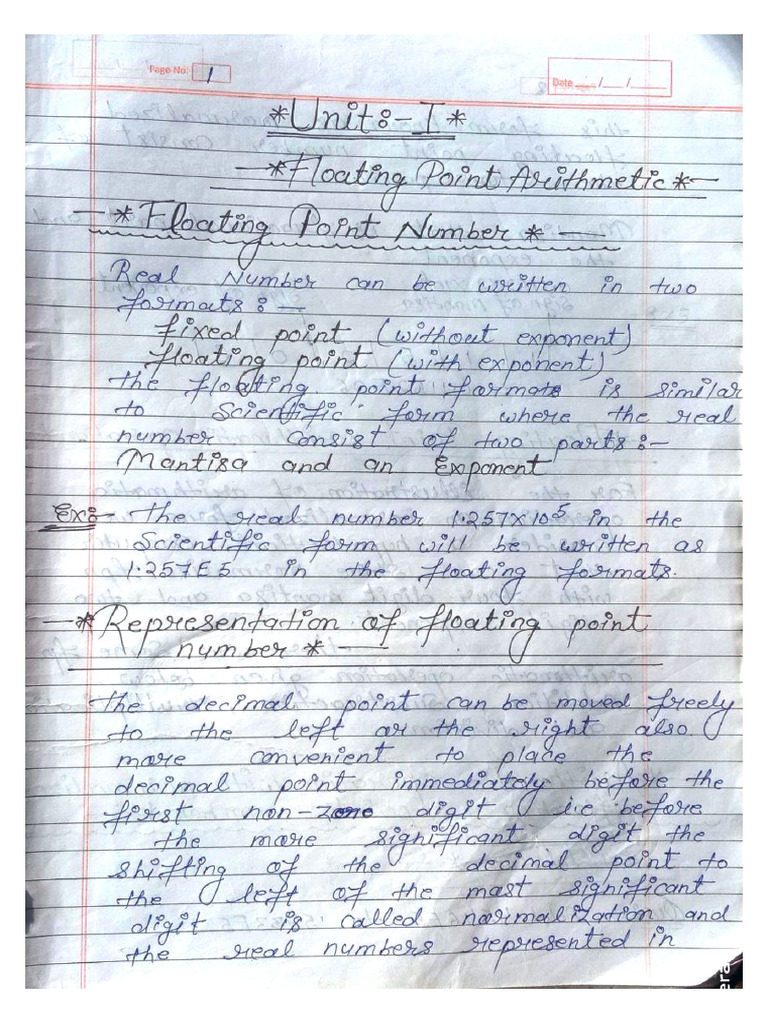 Page No. 1
Date __/__/__
*Unit:-I*
-*Floating Point Arithmetic*-
-*Floating Point Number*-
Real Number can be written in two
formats:-
fixed point (without exponent)
floating point (with exponent)
the floating point formate is similar
to Scientific form where the real
number consist of two parts:-
Mantisa and an Exponent
Ex:- The real number 1.257×10⁵ in the
Scientific form will be written as
1.257E5 in the floating formats.
-*Representation of floating point
number*-
The decimal point can be moved freely
to the left or the right also
more convenient to place the
decimal point immediately before the
first non-zero digit i.e before
the more significant digit the
shifting of the decimal point to
the left of the most significant
digit is called normalization and
the real numbers represented in